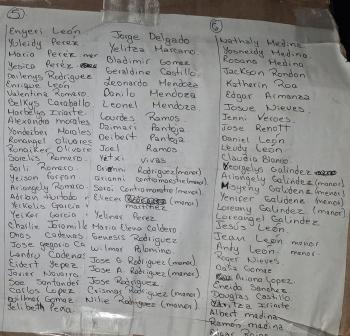 5
Engeri León
Yuleidy Perez
Mario Perez
Yesica Perez
Dailenys Rodriguez
Enrique León
Valentina Romero
Belkys Caraballo
Marbelys Iriarte
Alexandra Morales
Yondeiber Morales
Ronangel Olivares
Ronaiker Olivare
Sorelis Romero
Sorli Romero
Yeison Farfan
Ariangely Romero
Adrian Hurtado
Yerkelis Garcia
Yeiker Garcia
Charlie Jaramillo
Dios Cadenas
Jose gregorio Ca
Landry Cadenas
Eidert Yepez
Javier Navarro
Joe Santander
Carlos Lopez
Wilmar Gomez
Yelibeth Peña
Jorge Delgado
Yelitza Marcano
Bladimir Gomez
Geraldine Castillo
Leonardo Mendoza
Daniel Mendoza
Leonel Mendoza
Lourdes Ramos
Daimari Pantoja
Deibert Pantoja
Joel Ramos
Yetxi vivas
Rodriguez (manor)
Arianni Contramaestre (menor)
Sarai Contramaestre (manor)
Eliecer
martinez
Yelimar Perez
Maria Elena Caldero
Genesis Rodriguez
Wilmar Palomino
Jose G Rodriguez (manor)
Jose A. Rodriguez (manor)
Jose Rodriguez
Crismar Rodriguez (manor)
Nilie Rodriguez (manor)
6
Nathaly Medina
Yosneidy Medina
Rosana Medina
Jackson Rondon
Katherin Roa
Edgar Armanza
Josue Nieves
Jenni Veroes
Jose Renott
Daniel León
Leudy León
Claudia Blanco
Yeorgelys Galindez
Ariangely Galindez (manor)
Galindez (menor)
Yeniper Galidene (menor)
Loreany Galindez (manor)
Loreangel Galindez
Jesús León
Jean León manor
Andy León manor
Roger Nieves
Gomez
Ariana Lopez
Eneida Sanchez
Douglas Castillo
Daritza Iriarte
Albert madina
Ramon madina